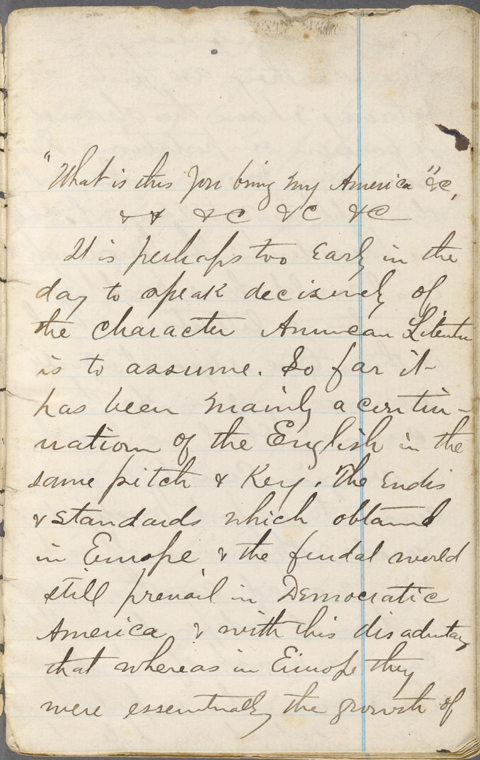 "What is this you bring my America" &c,
& & &c &c &c
It is perhaps too early in the
day to speak decisively of
the character American Literatu
is to assume. So far it
has been mainly a contin-
uation of the English in the
same pitch & key. The ends
& standards which obtained
in Europe & the feudal world
still prevail in Democratic
America, & with this disadvantag
that whereas in Europe they
were essentially the growth of